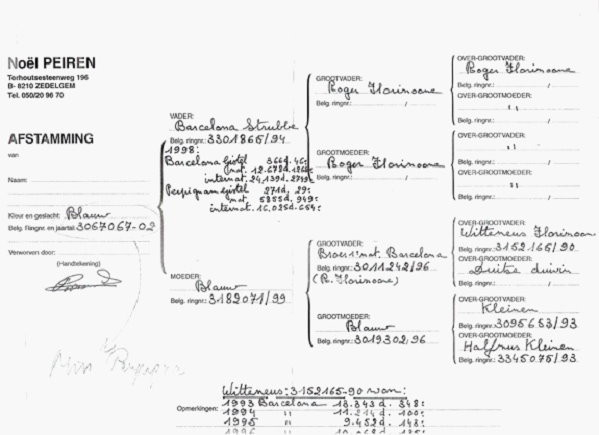 Noël PEIREN
Torhoutsesteenweg 196
B- 8210 ZEDELGEM
Tel. 050/20 96 70
AFSTAMMING
van
Naam:
Kleur en geslacht: Blauw
Belg. Ringnr. en jaartal: 3067067-02
Verworven door:
(Handtekening)
VADER:
Barcelona Strubbe
Belg. ringnr.: 3301865/94
1998:
Barcelona gistel 366d. 46:
nat. 12.678d.
internat. 24.139d.
Perpignan gistel 271d. 29:
nat. 5855d. 949:
internat. 16.025d.
MOEDER:
Blauw
Belg. ringnr.: 3189071/99
GROOTVADER:
Roger Florizoone
Belg. ringnr.: /
GROOTMOEDER:
Roger Florizoone
Belg. ringnr.: /
GROOTVADER:
Broer 1° nat. Barcelona
Belg. ringnr.: 3011242/96
(R. Florizoone)
GROOTMOEDER:
Blauw
Belg. ringnr.: 3019302/96
OVER-GROOTVADER:
Roger Florizoone
Belg. ringnr.: /
OVER-GROOTMOEDER:
" "
Belg. ringnr.: /
OVER-GROOTVADER:
" "
Belg. ringnr.: /
OVER-GROOTMOEDER:
" "
Belg. ringnr.: /
OVER-GROOTVADER:
Witteneus Florizoone
Belg. ringnr.: 3152165/90
OVER-GROOTMOEDER:
Duitse duivin
Belg. ringnr.: /
OVER-GROOTVADER:
Kleinen
Belg. ringnr.: 3095653/93
OVER-GROOTMOEDER:
Halfzus Kleinen
Belg. ringnr.: 3345075/93
Witteneus: 3152165-90 won:
Opmerkingen: 1993 Barcelona 13.343d. 348:
1994 " 11.214d. 100:
1995 " 9.452d. 148:
1996 "